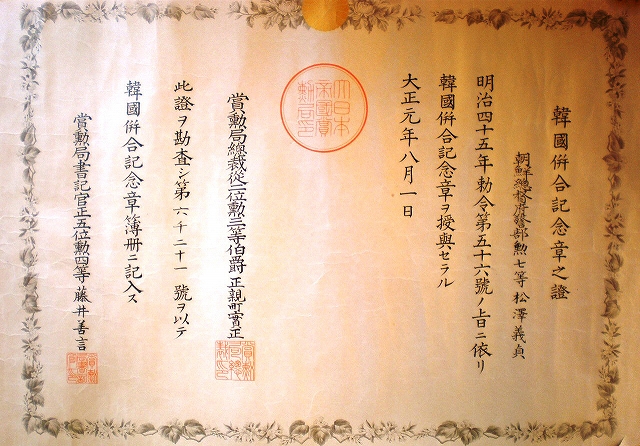 韓國併合記念章之證
朝鮮總督府警部勲七等 松澤義貞
明治四十五年勅令第五十六號ノ旨ニ依リ
韓國併合記念章ヲ授與セラル
大正元年八月一日
大日本帝國賞勲局印
賞勲局總裁從二位勲三等伯爵 正親町實正
此證ヲ勘査シ第六千二十一號ヲ以テ
韓國併合記念章簿册ニ記入ス
賞勲局書記官正五位勲四等 藤井善言